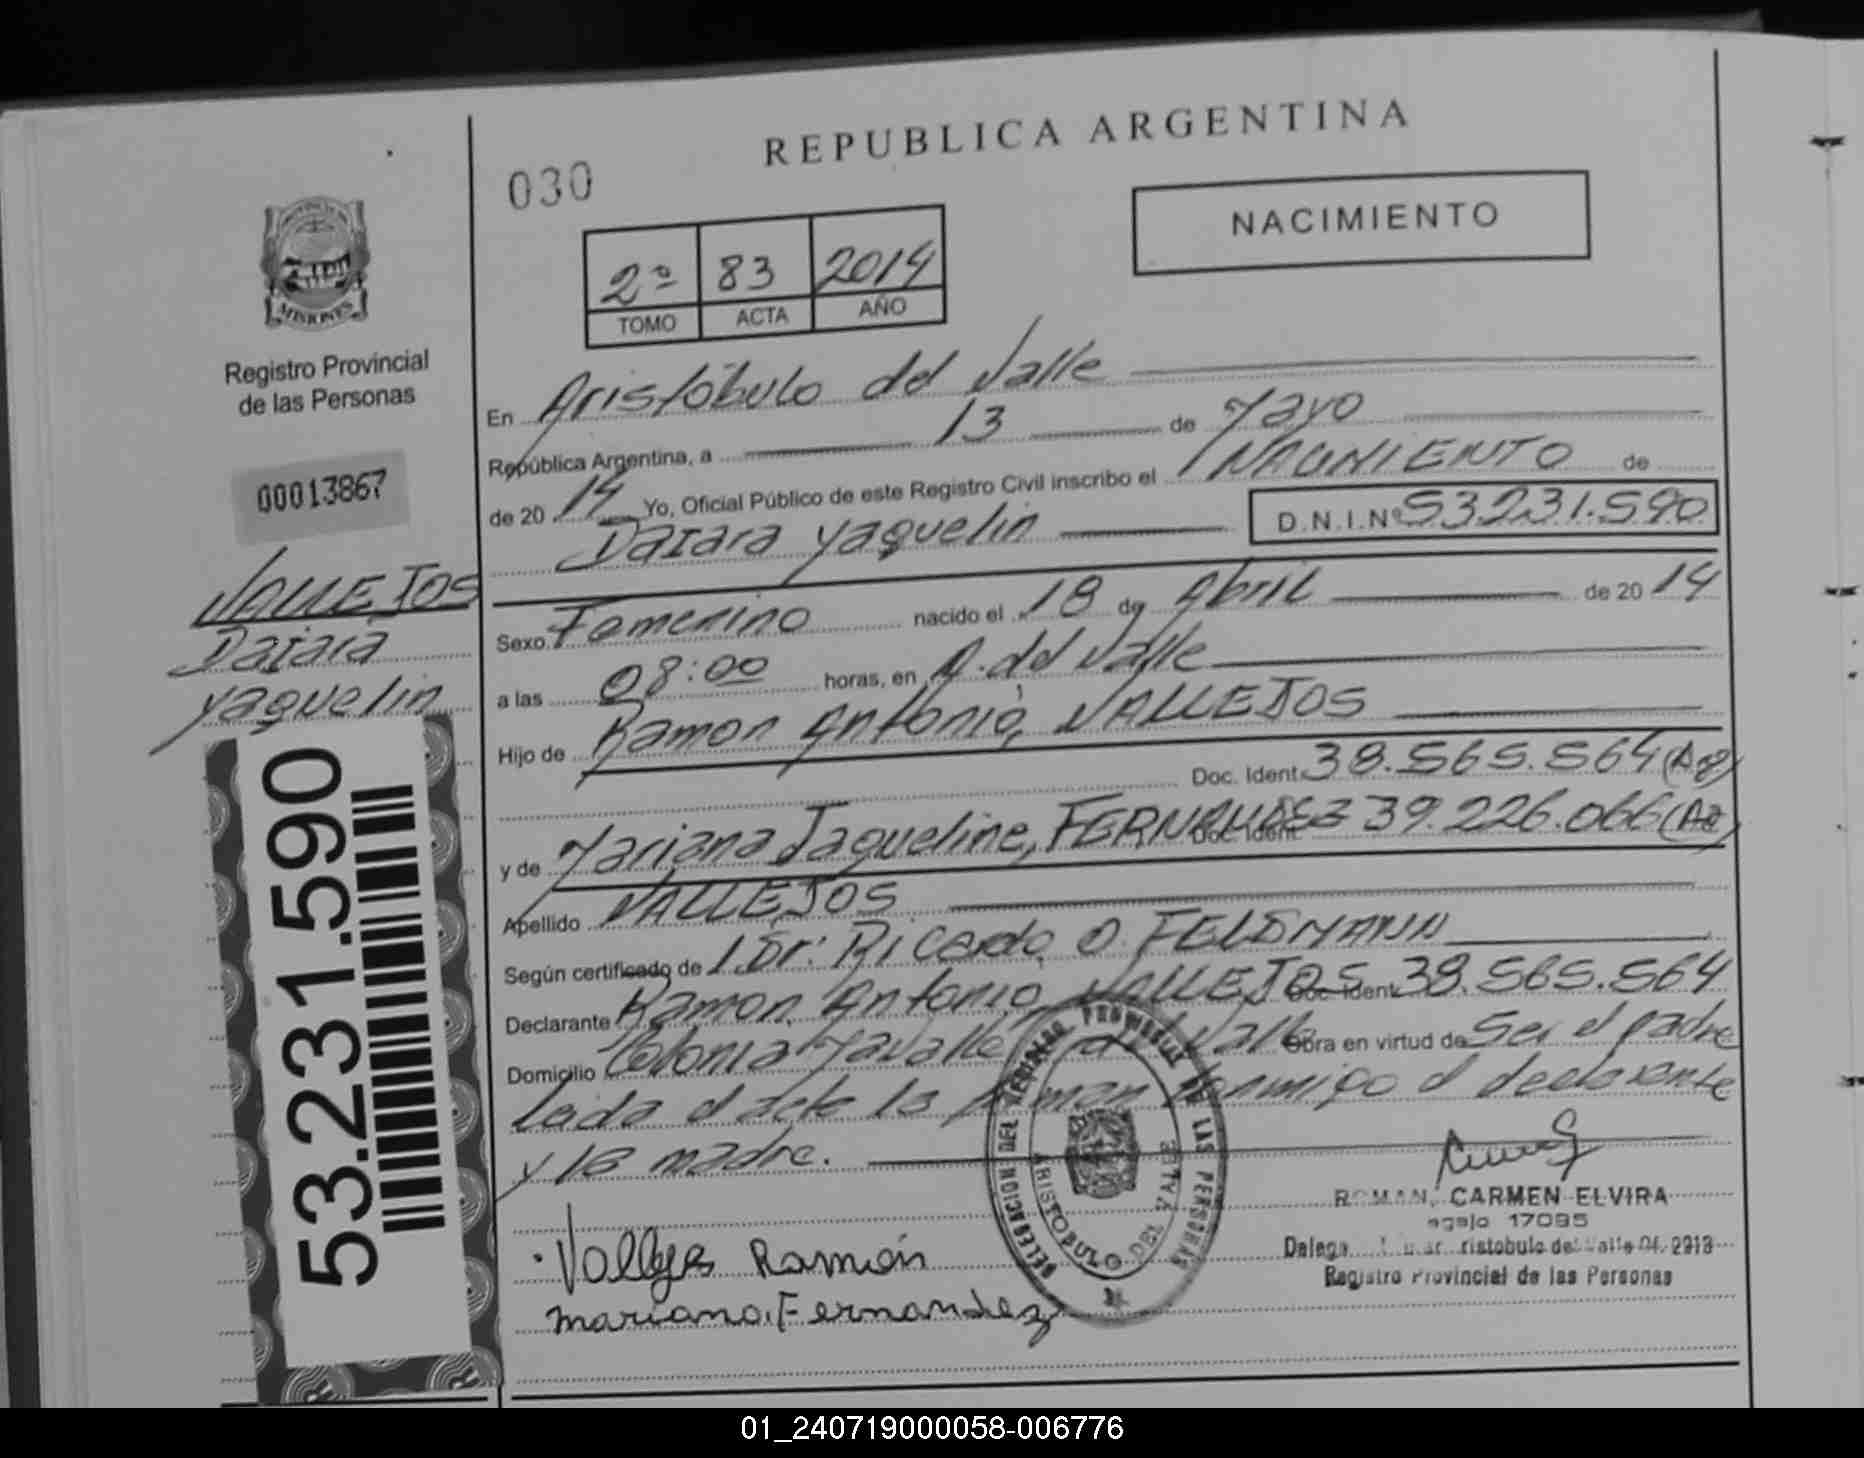 REPUBLICA ARGENTINA
030
NACIMIENTO
2º 83 2014
TOMO ACTA AÑO
MISIONES
Registro Provincial
de las Personas
00013867
VALLEJOS
Daiara
Yaquelin
53.231.590
En Aristóbulo del Valle
República Argentina, a 13 de Mayo
de 20 14 Yo, Oficial Público de este Registro Civil inscribo el NACIMIENTO de
Daiara Yaquelin D.N.I.Nº 53.231.590
Sexo Femenino nacido el 18 de Abril de 20 14
a las 08:00 horas, en A. del Valle
Hijo de Ramon Antonio, VALLEJOS
Doc. Ident. 38.565.564 (Ag)
y de Mariana Jaqueline, FERNANDEZ Doc. Ident. 39.226.066
Apellido VALLEJOS
Según certificado de Dr. Ricardo O. FELDMANN
Declarante Ramon Antonio VALLEJOS Doc. Ident. 38.565.564
Domicilio Colonia del Valle Obra en virtud de Ser el padre
Leida el Acta la firman conmigo el declarante
y la madre.
DELEGACION DEL REGISTRO PROVINCIAL DE LAS PERSONAS
ARISTOBULO DEL VALLE
Vallejos Ramón
Mariana Fernandez
ROMAN, CARMEN ELVIRA
17095
Registro Provincial de las Personas
01_240719000058-006776